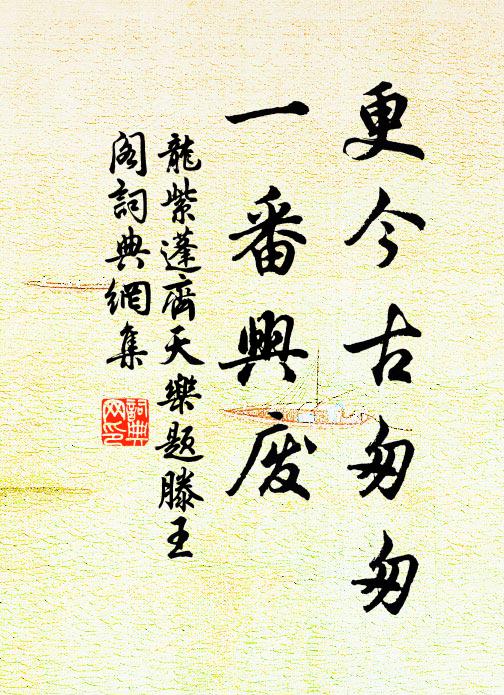 更今古匆匆
一番興廢
龍紫蓬齊天樂題滕王
閣詞典網集
詞典
网印